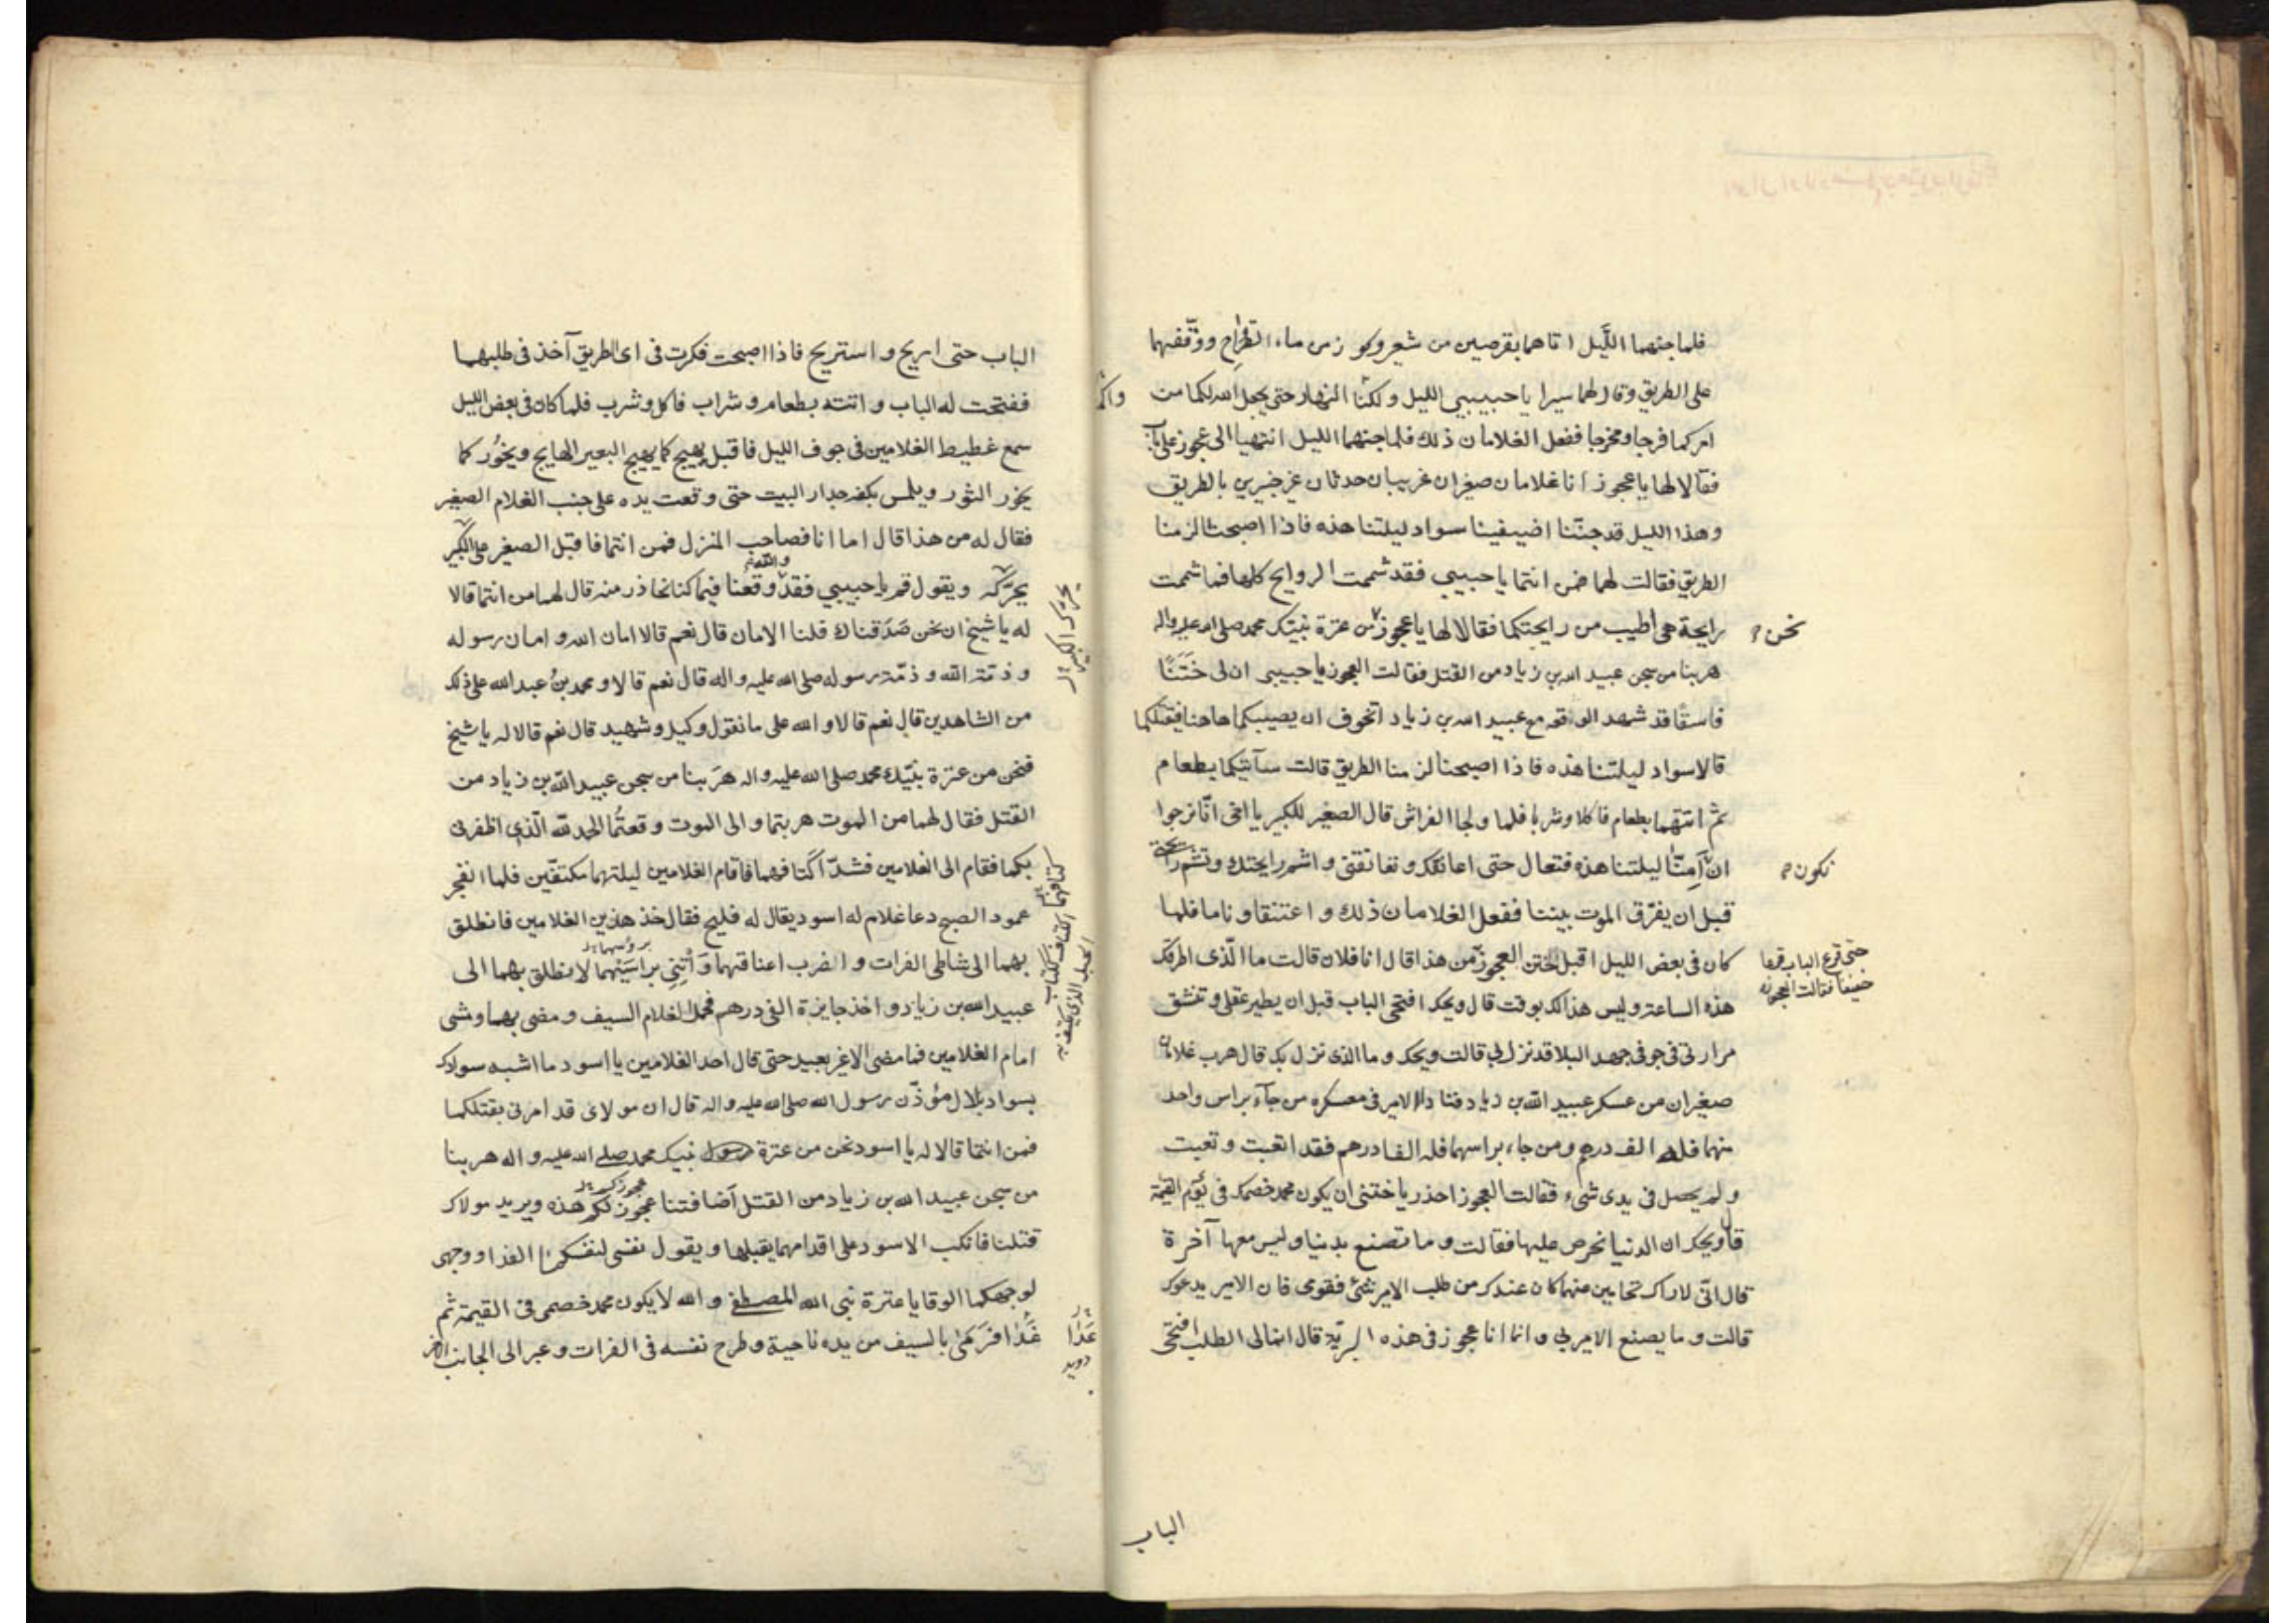 فلما جنهما اللَّيل اتاهما بقرصين من شعير وكوز من ماء القراح ووقّفهما
على الطريق وقال لهما سيرا يا حبيبيي الليل ولكنا النهار حتى يجعل الله لكما من
امركما فرجا ومخرجا ففعل الغلامان ذلك فلما جنهما الليل انتهيا الى عجوز على باب
فقالا لها يا عجوز انا غلامان صغيران غريبان حدثان غير خبيرين بالطريق
وهذا الليل قد جنّنا اضيفينا سواد ليلتنا هذه فاذا اصبحنا لزمنا
الطريق فقالت لهما فمن انتما يا حبيبي فقد شممت الروايح كلها فما شممت
رايحة هى اطيب من رايحتكما فقالا لها يا عجوز من عترة نبيك محمد صلى الله عليه واله
نحن
هربنا من سجن عبيد الله بن زياد من القتل فقالت العجوز يا حبيبي ان لى خَتَنًا
فاسقًا قد شهد الوقعة مع عبيد الله بن زياد اتخوف ان يصيبكما هاهنا فيقتلكما
قالا سواد ليلتنا هذه فاذا اصبحنا لزمنا الطريق قالت سآتيكما بطعام
ثم اتتهما بطعام فاكلا وشربا فلما ولجا الفراش قال الصغير للكبير يا اخى انّا نرجوا
ان آمِنّا ليلتنا هذه فتعال حتى اعانقك وتعانقنى واشم رايحتك وتشم رايحتى
نكون
قبل ان يفرّق الموت بيننا ففعل الغلامان ذلك واعتنقا وناما فلما
كان فى بعض الليل اقبل ختن العجوز من هذا قال انا فلان قالت ما الّذى اطرقك
حتى قرع الباب قرعا
خفيفا فقالت العجوز
هذه الساعة وليس هذا لك بوقت قال ويحك افتحى الباب قبل ان يطير عقلى وتنشق
مرارتى فى جوفى جهد البلا قد نزل بى قالت ويحك وما الذى نزل بك قال هرب غلامان
صغيران من عسكر عبيد الله بن زياد فنادا الامير فى معسكره من جآء براس واحد
منهما فله الف درهم ومن جاء براسهما فله الفا درهم فقد اتعبت وتعبت
ولم يحصل فى يدى شىء فقالت العجوز احذر يا ختنى ان يكون محمد خصمك فى يَوْم القيمة
قال ويحك ان الدنيا نحرص عليها فقالت وما تصنع بدنيا وليس معها آخرة
قال انّى لاراك تحامين عنهما كان عندك من طلب الامير شئ فقومى فان الامير يدعوك
قالت وما يصنع الامير بي وانما انا عجوز فى هذه البريّة قال انما لى الطلب افتحى
الباب
الباب حتى اريح واستريح فاذا اصبحت فكرت فى اى الطريق آخذ فى طلبهما
ففتحت له الباب واتته بطعام وشراب فاكل وشرب فلما كان فى بعض الليل
سمع غطيط الغلامين فى جوف الليل فاقبل يهيج كما يهيج البعير الهايج ويخُور كما
يخور الثور ويلمس بكفه جدار البيت حتى وقعت يده على جنب الغلام الصغير
فقال له من هذا قال اما انا فصاحب المنزل فمن انتما فاقبل الصغير على الكبير
يحرّكه ويقول قم يا حبيبي فقد والله وقعنا فيما كنا نحاذر منه قال لهما من انتما قالا
له يا شيخ ان نحن صَدَقناك فلنا الامان قال نعم قالا امان الله وامان رسوله
وذمّة الله وذمّة رسوله صلى الله عليه واله قال نعم قالا ومحمد بنُ عبد الله على ذلك
من الشاهدين قال نعم قالا والله على ما نقول وكيل وشهيد قال نعم قالا له يا شيخ
فنحن من عترة نبيّك محمد صلى الله عليه واله هرَبنا من سجن عبيد الله بن زياد من
القتل فقال لهما من الموت هربتما والى الموت وقعتُما الحمد لله الّذى اظفرنى
بكما فقام الى الغلامين فشدّ اكتافهما فاقام الغلامين ليلتهما مكتفّين فلما انفجر
عمود الصبح دعا غلام له اسود يقال له فليح فقال خذ هذين الغلامين فانطلق
بهما الى شاطى الفرات واضرب اعناقهما وَأتِنِى براسَيْهما لانطلق بهما الى
عبيد الله بن زياد واخذ جايزة الفى درهم فحمل الغلام السيف ومضى بهما ومشى
امام الغلامين فما مضى الا غير بعيد حتى قال احد الغلامين يا اسود ما اشبه سوادك
بسواد بلال مؤذّن رسول الله صلى الله عليه واله قال ان مولاى قد امرنى بقتلكما
فمن انتما قالا له يا اسود نحن من عترة رسول نبيك محمد صلى الله عليه واله هربنا
من سجن عبيد الله بن زياد من القتل آضافتنا عجوز لكم هذه ويريد مولاك
عجوزكم
قتلنا فانكب الاسود على اقدامهما يقبلها ويقول نفسى لنفسكما الفدا ووجهى
لوجهكما الوقا يا عترة نبى الله المصطفى والله لا يكون محمد خصمى فى القيمة ثم
غَدًا فرَمَىٰ بالسيف من يده ناحية وطرح نفسه فى الفرات وعبر الى الجانب الاخر
عَدَا
دويد